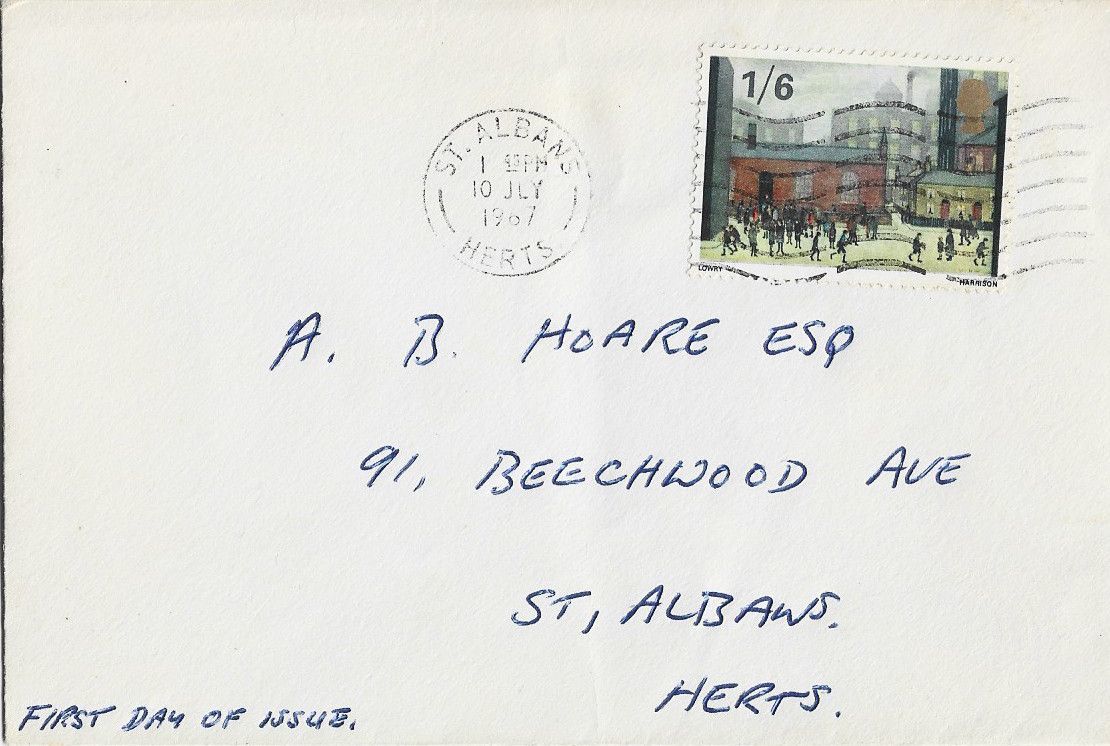 1/6
ST. ALBANS
1 PM
10 JLY
1967
HERTS
LOWRY
HARRISON
A. B. HOARE ESQ
91, BEECHWOOD AVE
ST, ALBANS.
HERTS.
FIRST DAY OF ISSUE.